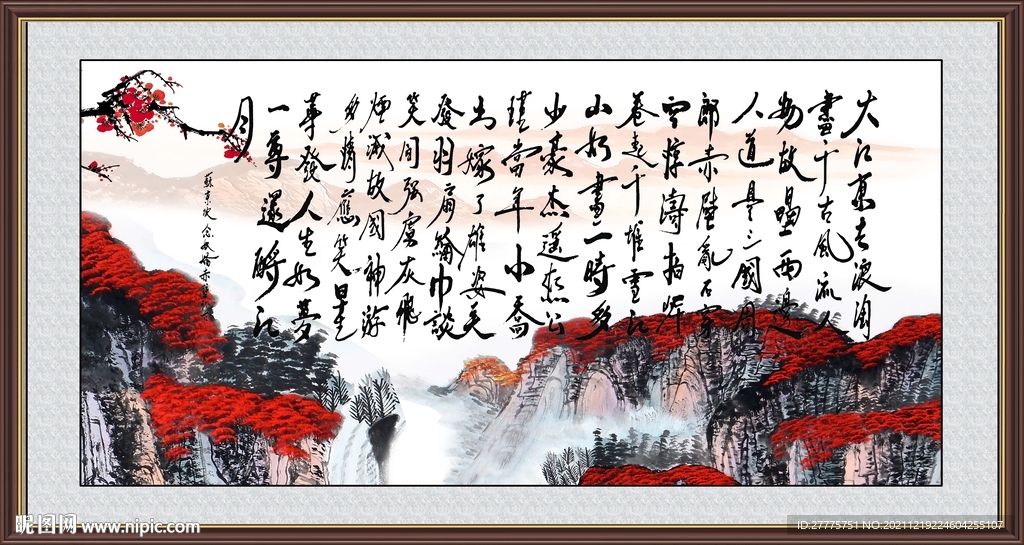 大江東去浪淘
盡千古風流人
物故壘西邊
人道是三國周
郎赤壁亂石穿
空驚濤拍岸
卷起千堆雪江
山如畫一時多
少豪杰遥想公
瑾當年小喬
出嫁了雄姿英
發羽扇綸巾談
笑間强虜灰飛
烟滅故國神游
多情應笑早生
華發人生如夢
一尊還酹江
月
蘇東坡念奴嬌赤壁懷古
昵图网 www.nipic.com
ID:27775751 NO:20211219224604255107